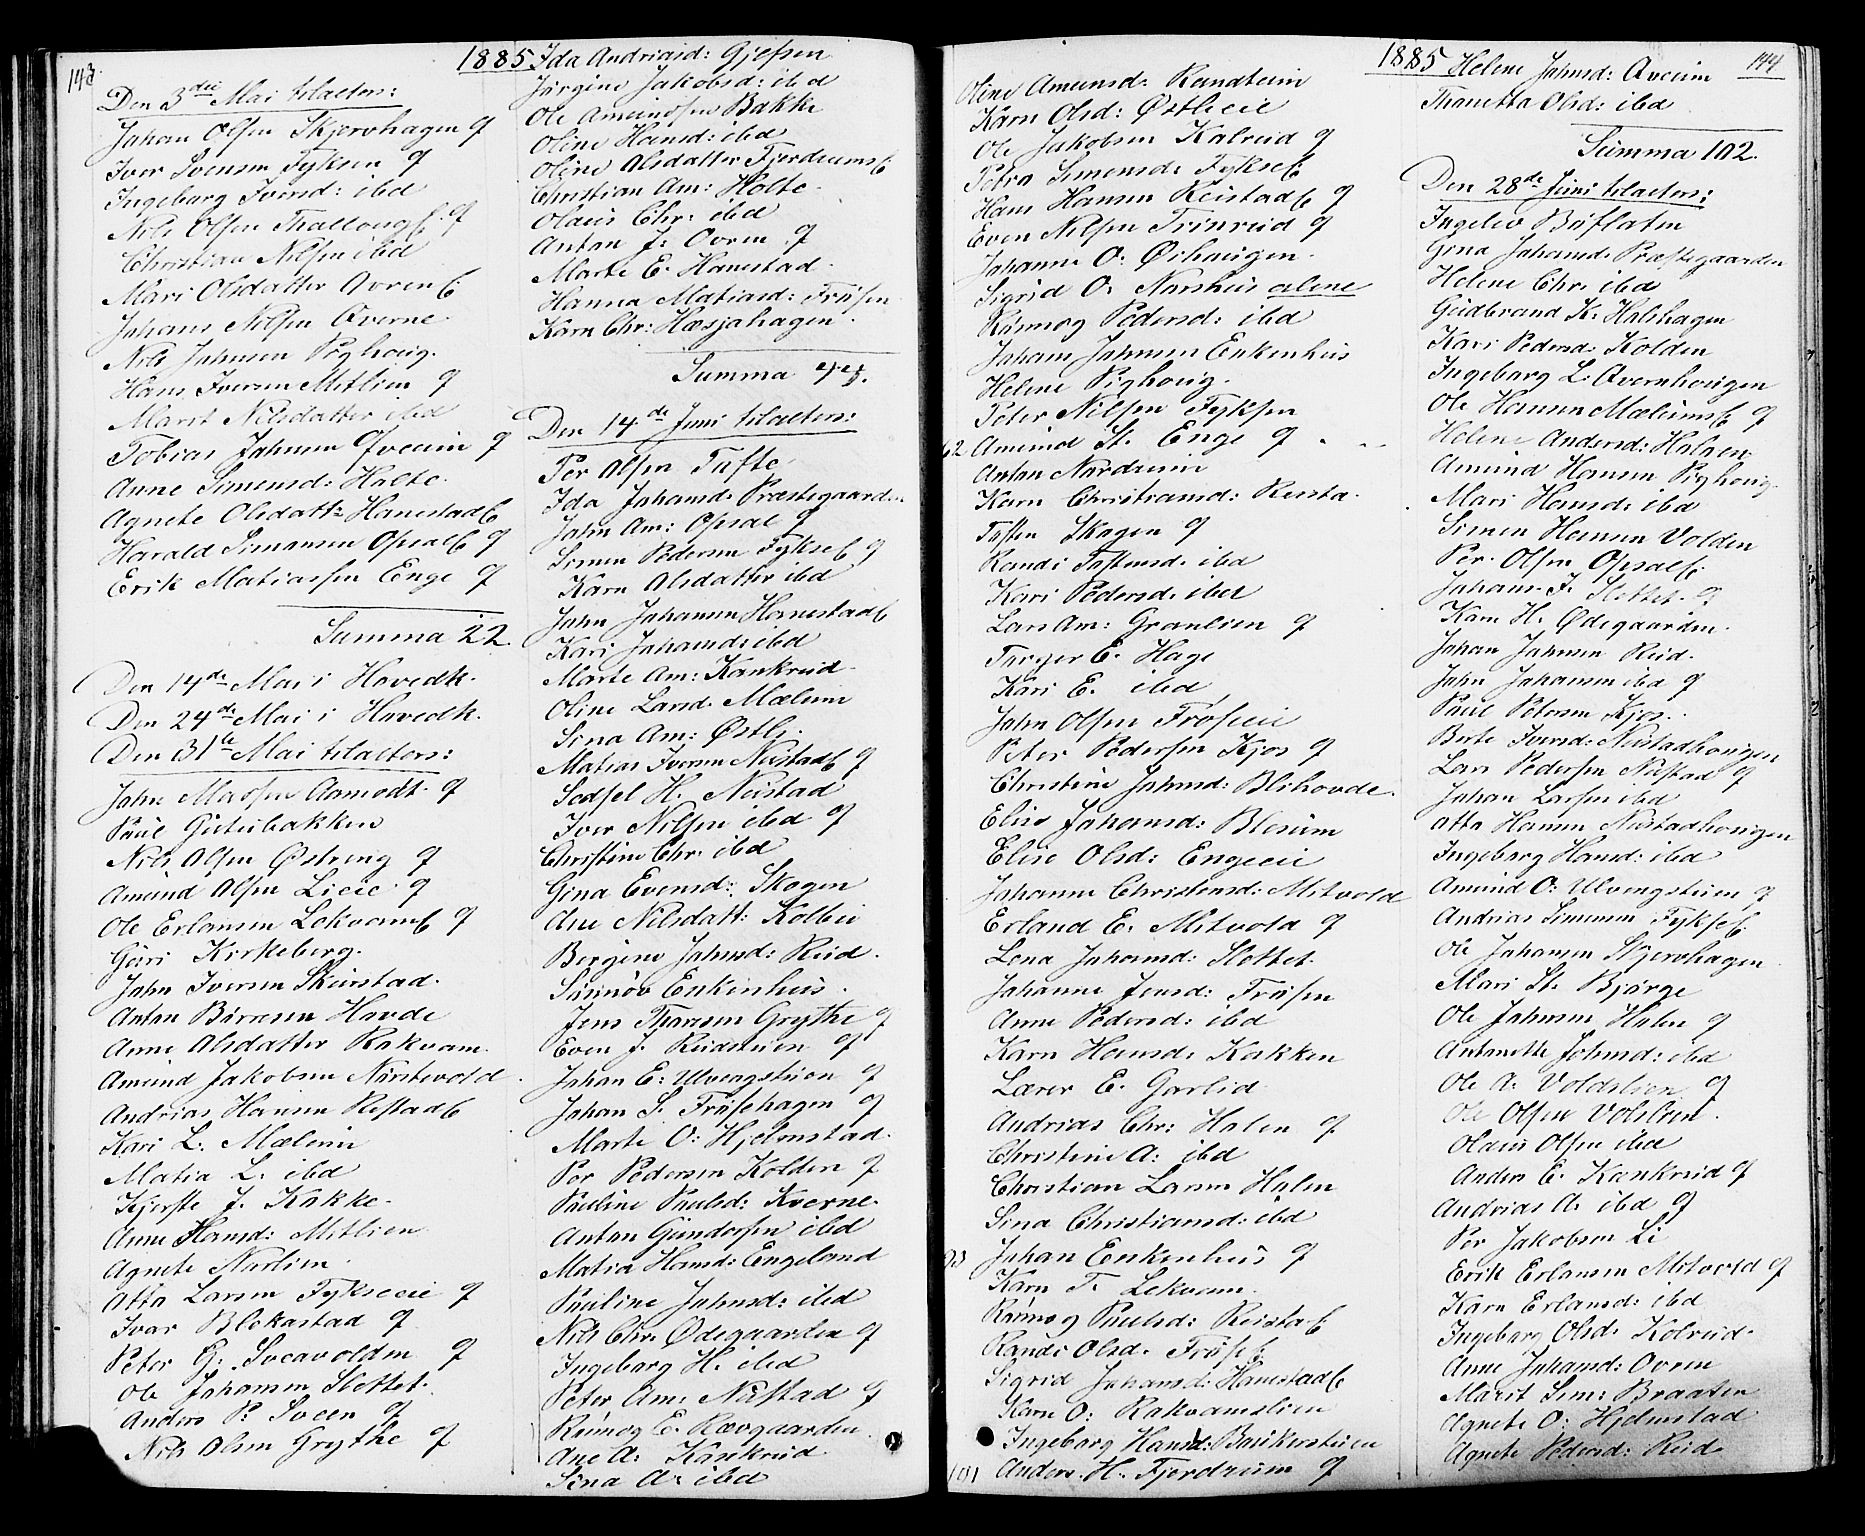 143.
1885
Den 3die Mai tilaeters:
Johan Olsen Skjervhagen g
Iver Svensen Fyksen g
Ingeborg Iversd: ibd
Nils Olsen Thallaug g
Christian Nilsen ibd
Mari Olsdatter Ovren
Johans Nilsen Qverne
Nils Johnsen Pighoug.
Hans Iversen Mitlien g
Marit Nilsdatter ibd
Tobias Johnsen Qveum g
Anne Simensd: Holte.
Agnete Olsdattr Hanestad
Harald Simonsen Opsal g
Erik Matiassen Enge g
Summa 22.
Den 14de Mai i Hovedk.
Den 24de Mai i Hovedk.
Den 31te Mai tilaeters:
John Aamodt g
Paul
Nils Olsen Østeng g
Amund Olsen Lieie g
Ole Erlansen Lekvam g
Guri Kirkeberg.
John Iversen Skurstad.
Antan Hovde
Anne Olsdatter Rakvam.
Amund Jakobsen
Andrias Hansen Restad
Kari L. Mælum
Matia L. ibd
Kjerste J. Kakke.
Anne Hansd: Mitlien
Agnete Narlien
Otto Larsen Fykseeie g
Ivar Blekastad g
Peter G. Sveavolden g
Ole Johansen Slottet.
Anders P. Sveen g
Nils Olsen Grythe g
Ida Andriasd: Gjefsen
Jørgine Jakobsd: ibd
Ole Amundsen Bakke
Oline Hansd: ibd
Oline Olsdatter Fjerdrums
Christian Am: Holte.
Olaus Chr: ibd
Antan J. Ovren g
Marte E. Hanestad
Hanna Matiasd: Frøsen
Karn Chr: Hæsjahagen.
Summa 45.
Den 14de Juni tilaeters:
Per Olsen Tufte
Ida Johansd: Præstegaarden
John Am: Opsal g
Simen Pedersen Fykse g
Karn Olsdatter ibd
John Johansen Hanestad
Kari Johansd: ibd
Marte Am: Kankrud
Oline Larsd. Mælum
Sina Am: Østli.
Matias Iversen Nustad g
Sedsel H. Nustad
Iver Nilsen ibd g
Christine Chr. ibd
Gina Evensd: Skogen
Ane Nilsdatt: Kolbu
Birgine Johnsd: Rud.
Sunnøv Enkenhus.
Jens Tharesen Grythe g
Even J. Rudstuen g
Johan E: Ulvengstuen g
Johan S. Frøsehagen g
Marte O: Hjelmstad.
Per Pedersen Kolden g
Pauline Paulsd: Kverne.
Antan Gundersen ibd
Matia Hansd: Engeland
Pauline Johnsd: ibd
Nils Chr. Ødegaarden g
Ingeborg H. ibd
Peter Am: Nustad g
Rønnog E. Rævgaarden
Ane A. Kankrud
Sina A: ibd
1885
Oline Amunsd: Randheim
Karn Olsd: Østlieie
Ole Jakobsen Kalrud g
Petra Simensd: Fykse
Hans Hansen Reistad g
Even Nilsen Trinrud g
Johanne O. Ørhaugen.
Sigrid O. Narshus alene
Rønnog Pedersd: ibd
Johan Johnsen Enkenhus
Helene Pighoug.
Peter Nilsen Fyksen
62 Amund St. Enge g
Antan Nordrum
Karn Christiansd: Reista.
Tosten Skogen g
Randi Tostensd. ibd
Kari Pedersd. ibd
Lars Am: Granlien g
Torger E. Hage
Kari E. ibd
John Olsen Frøseeie
Peter Pedersen Kjos g
Christine Johnsd: Blihovde.
Elise Johansd: Blesum
Elise Olsd: Engeeie
Johanne Christensd: Mitvold
Erland E. Mitvold g
Lena Johansd: Slottet.
Johanne Jensd: Frøsen
Anne Pedersd: ibd
Karn Hansd: Kakken
Lærer E. Garlid
Andrias Chr: Halen g
Christine A: ibd
Christian Larsen Halen
Sina Christiansd: ibd
93 Johan Enkenhus g
Karn T. Lekvam.
Rønnog Paulsd: Reista
Randi Olsd. Frøse
Sigrid Johansd: Hanestad
Karn O: Rakvamslien
Ingeborg Hansd: Bankerstuen
101 Anders H. Fjerdrum g
Helene Johnsd: Qveum
144
Thanetta Olsd: ibd
Summa 102.
Den 28de Juni tilaeters:
Ingeleiv Bøflaten
Gina Johansd: Præstegaarden
Helene Chr. ibd
Gudbrand K. Halshagen
Kari Pedersd: Kolden
Ingeborg L: Qvernhougen
Ole Hansen Mælum g
Helene Andersd: Halsen
Amund Hansen Pighoug.
Mari Hansd: ibd
Simen Hansen Volden
Per Olsen Opsal
Johans J. Slottet. g
Karn H. Ødegaarden.
Johan Johnsen Rud.
John Johansen ibd g
Paul Petersen Kjos.
Berte Iversd: Nustadhougen
Lars Pedersen Nustad g
Johan Larsen ibd
Otto Hansen Nustadhougen
Ingeborg Hansd: ibd
Amund O: Ulvengstuen g
Andrias Simensen Fykse
Ole Johansen Skjervhagen
Mari St. Bjørge
Ole Johnsen Halen g
Antonette Johnsd: ibd
Ole A: Voldslien g
Ole Olsen Voldslien.
Olaus Olsen ibd
Anders E. Kankrud g
Andrias A. ibd g
Per Jakobsen Li
Erik Erlansen Mitvold g
Karn Erlansd: ibd
Ingeborg Olsd. Kolrud.
Anne Johansd: Ovren
Marit Sim: Braaten
Agnete O: Hjelmstad
Agnete Pedersd: Rud